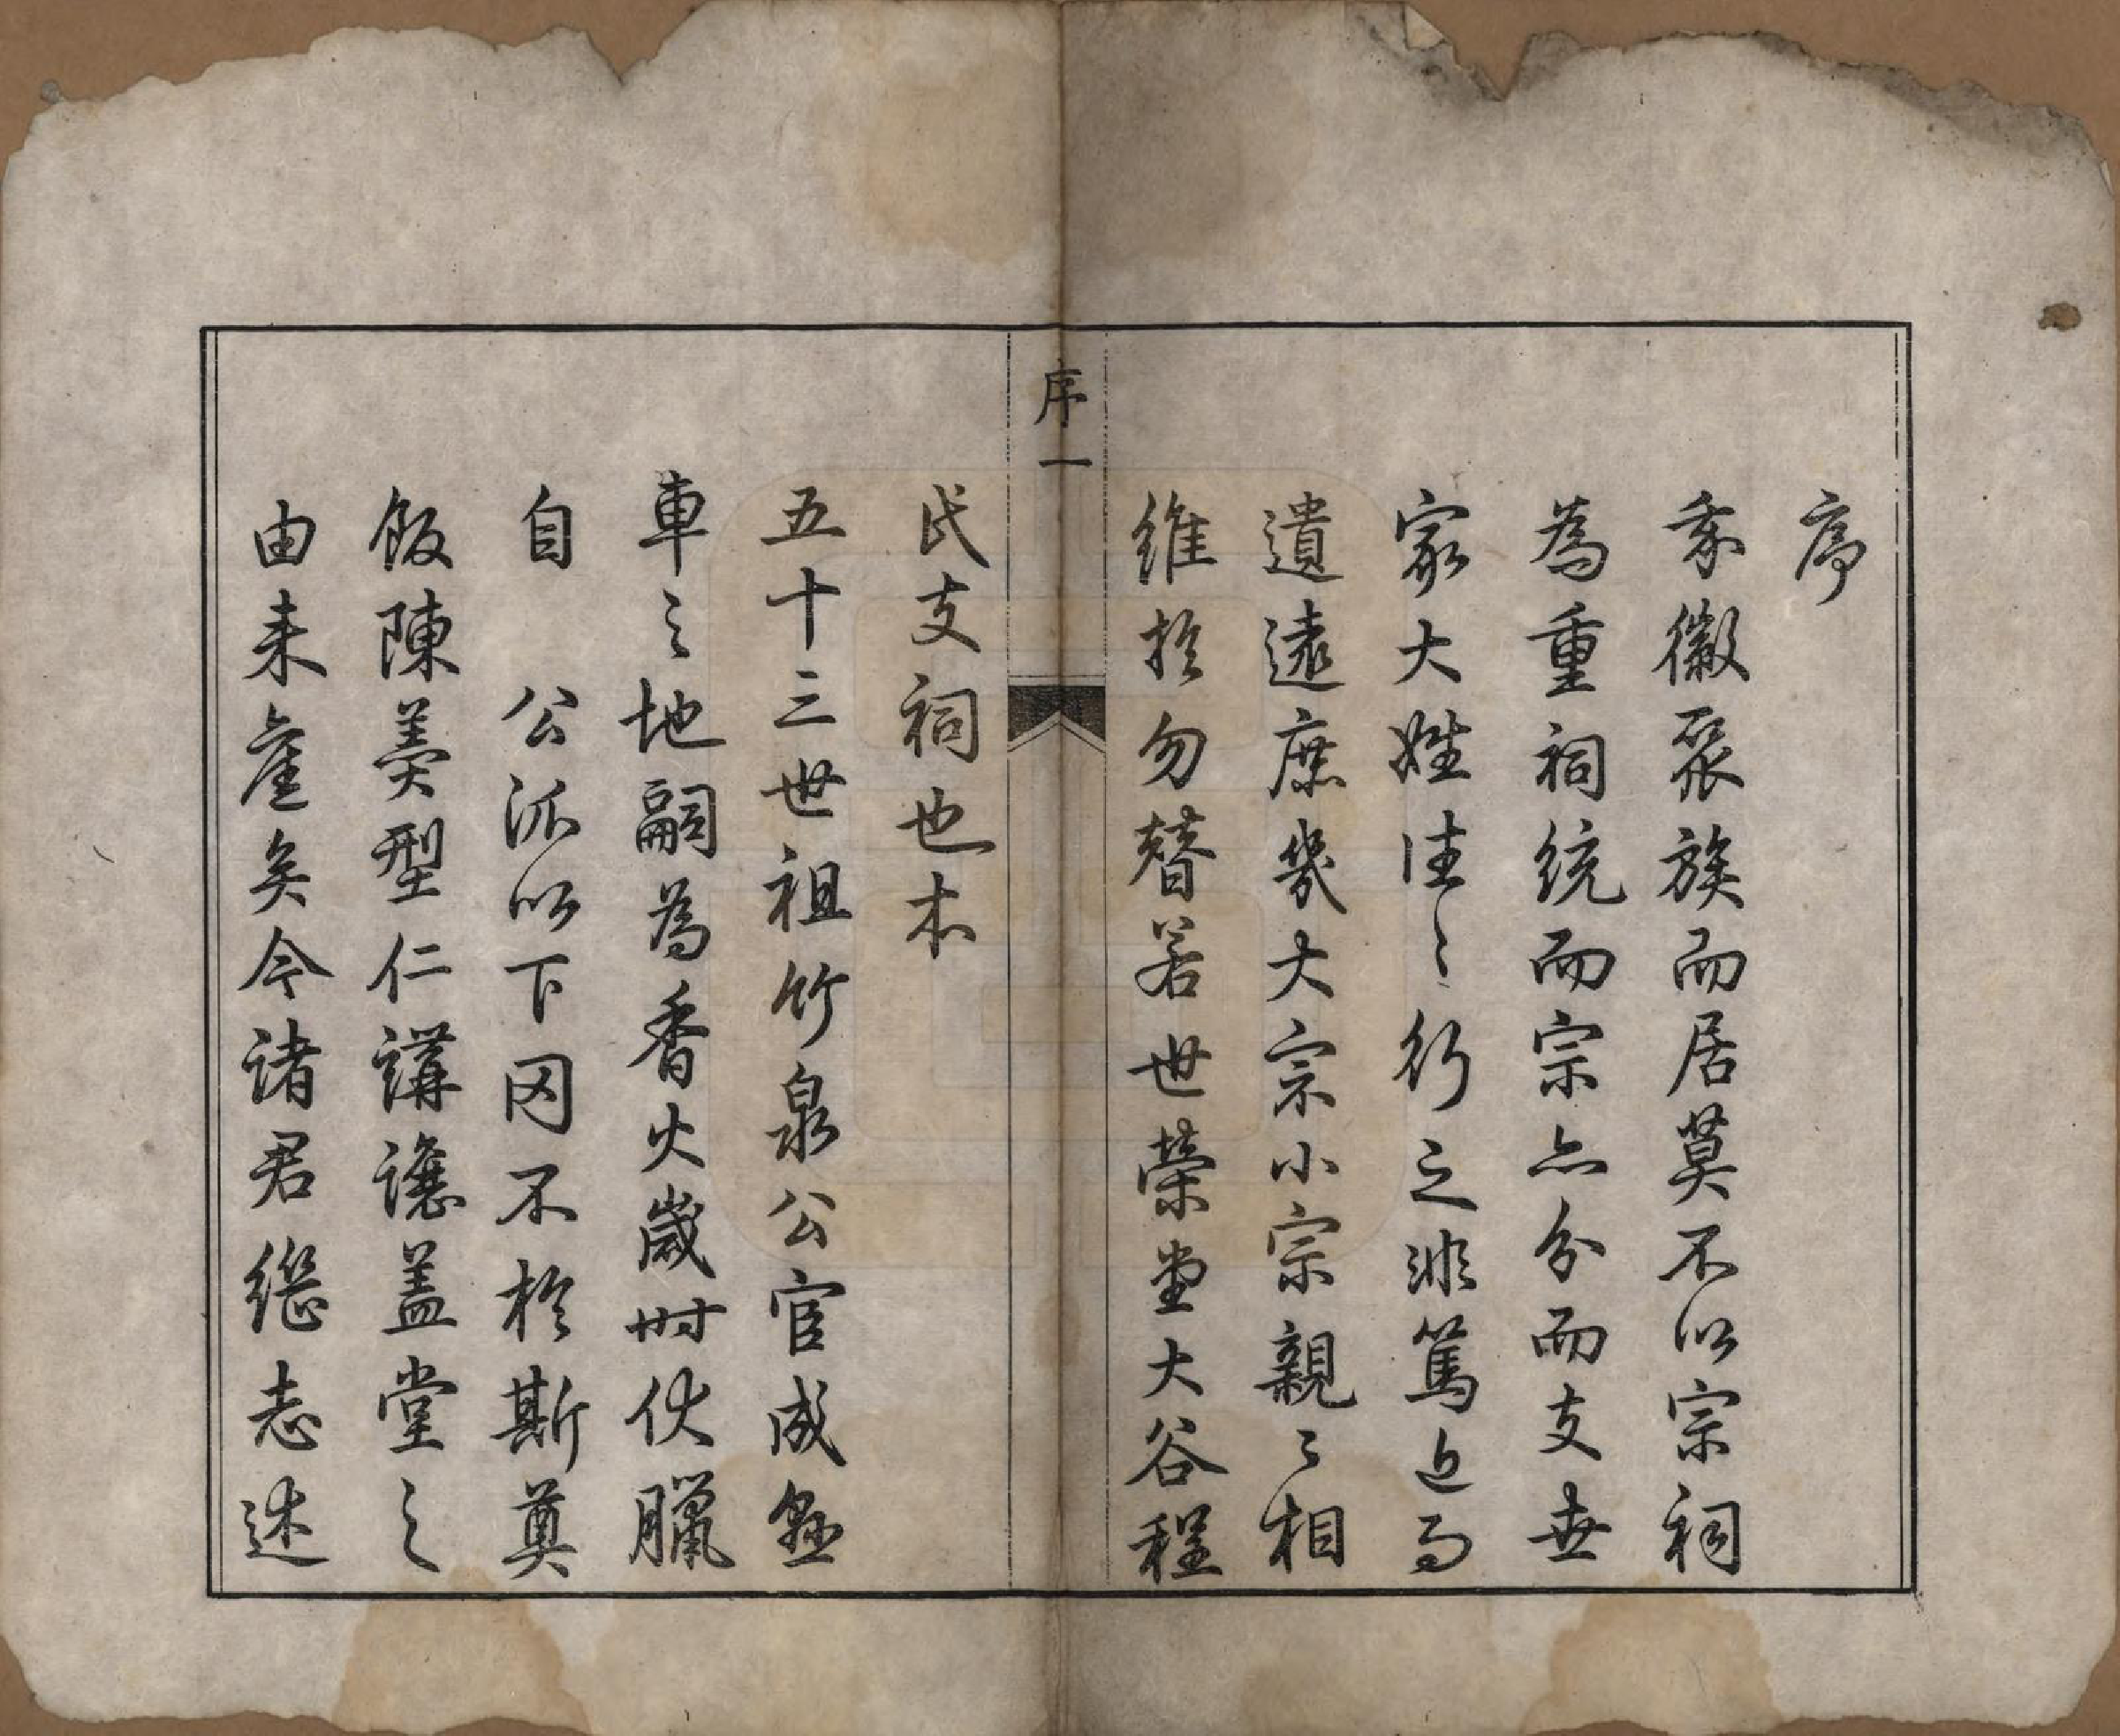 序
我徽聚族而居莫不以宗祠
為重祠統而宗亦分而支世
家大姓往〻行之非篤近而
遺遠庶幾大宗小宗親〻相
維於勿替若世榮堂大谷程
序一
氏支祠也本
五十三世祖竹泉公官成懸
車之地嗣為香火歲時伏臘
自 公派以下罔不於斯奠
飯陳羹型仁講讓蓋堂之
由來舊矣今諸君繼志述